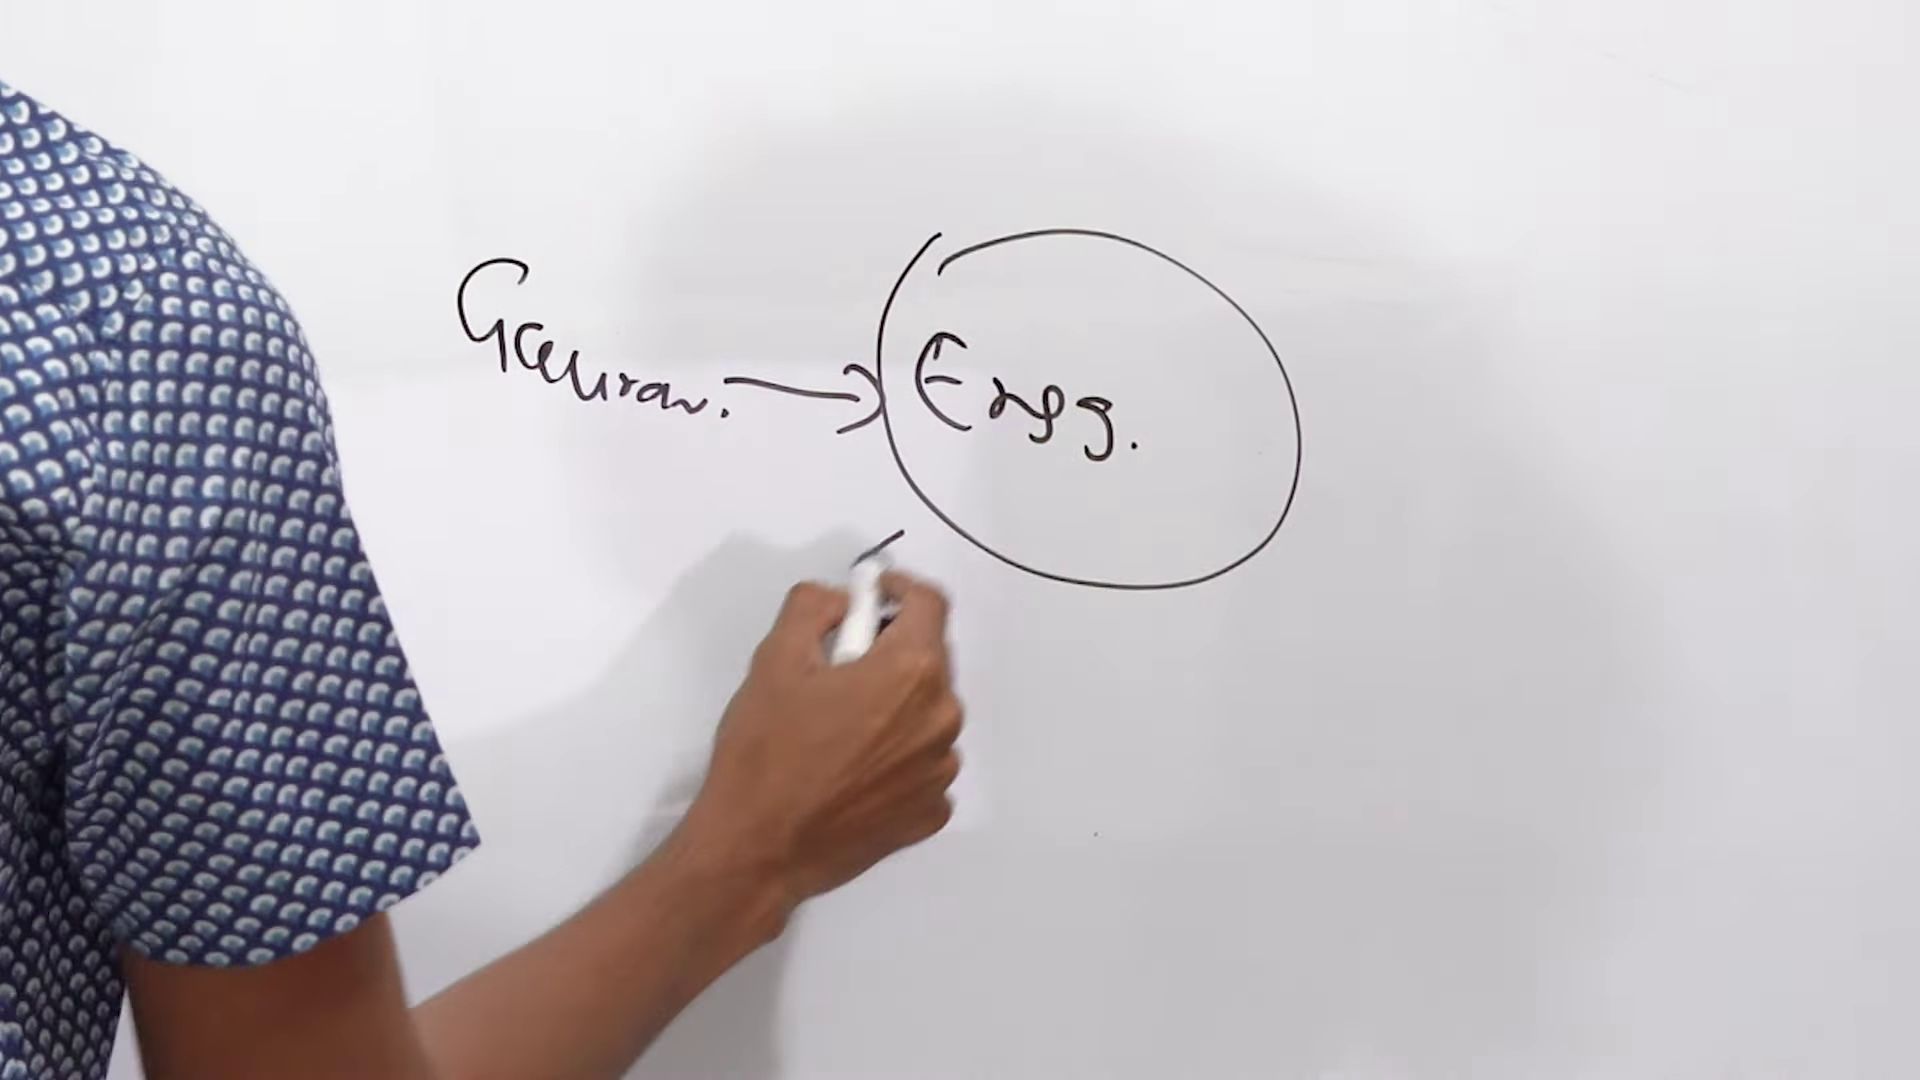 Gaurav. → Engg.